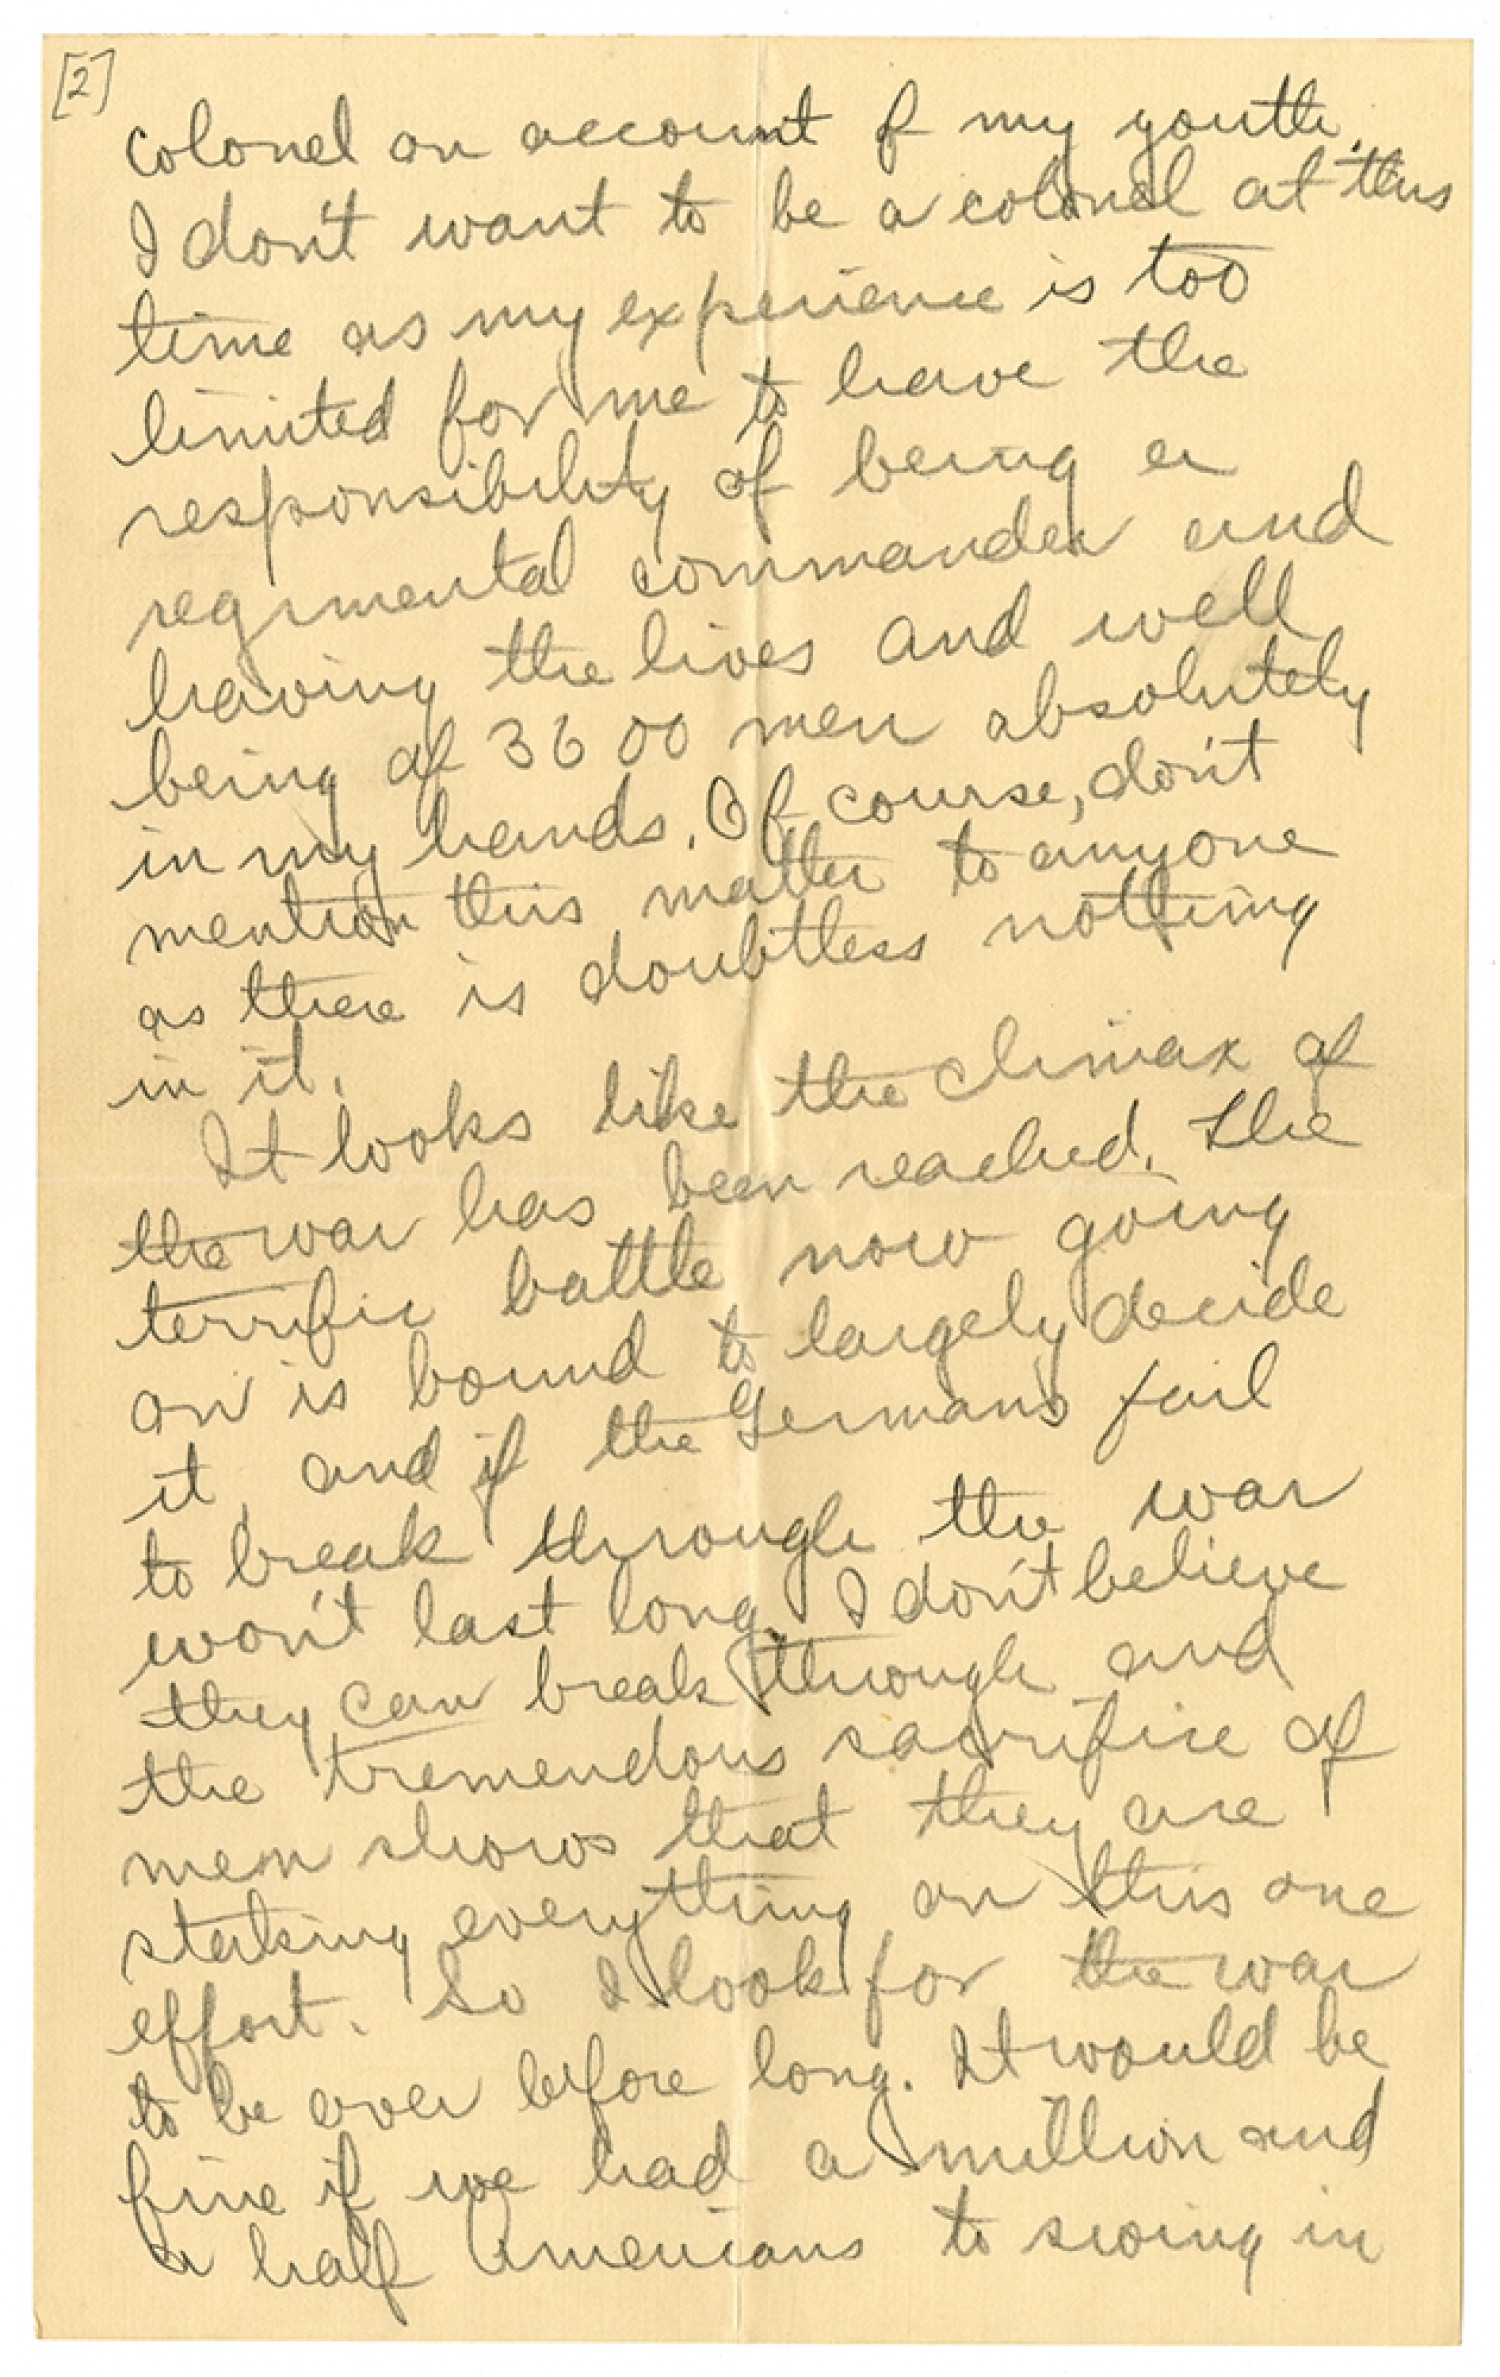 [2]
colonel on account of my youth.
I don't want to be a colonel at this
time as my experience is too
limited for me to have the
responsibility of being a
regimental commander and
having the lives and well
being of 3600 men absolutely
in my hands. Of course, don't
mention this matter to anyone
as there is doubtless nothing
in it.
It looks like the climax of
the war has been reached. The
terrific battle now going
on is bound to largely decide
it, and if the Germans fail
to break through the war
won't last long. I don't believe
they can break through and
the tremendous sacrifice of
men shows that they are
staking everything on this one
effort. So I look for the war
to be over before long. It would be
fine if we had a million and
a half Americans to swing in